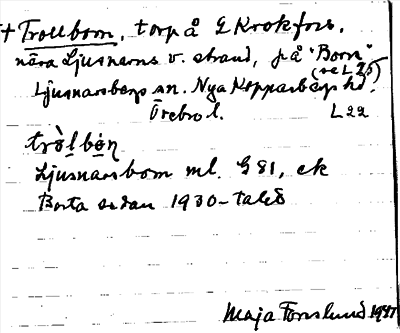 + Trollbom, torp å L Krokfors,
nära Ljusnarns v. strand, på "Born"
(se L 25)
Ljusnarsbergs sn. Nya Kopparbergs hd.
Örebro l. L 22
trò̀lbo̱n
Ljusnarsbom ml. G 81, ek
Borta sedan 1930-talet
Maja Forslund 1947